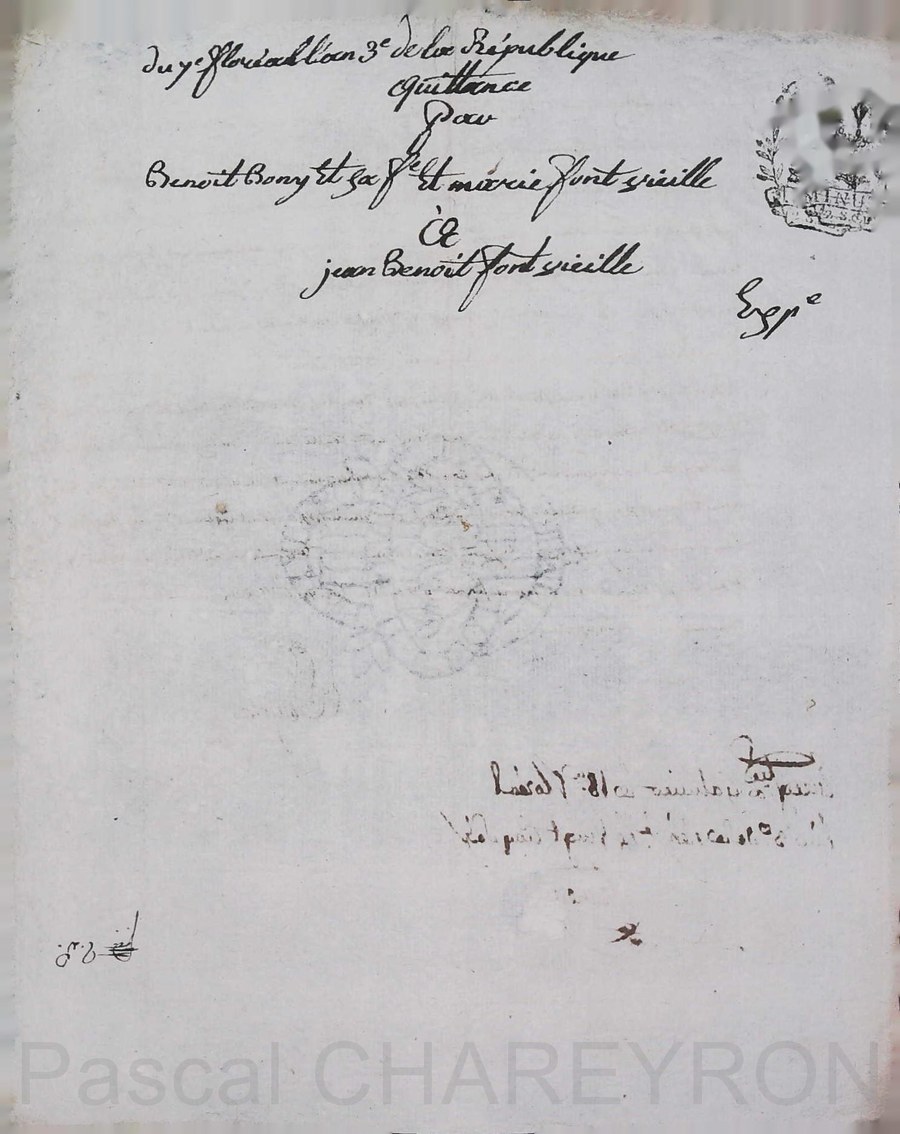 du 7e floréal l'an 3e de la République
Quittance
Pour
Benoit Bony Et sa fe Et marie font vieille
À
jean Benoit font vieille
Expe
MINU
Pascal CHAREYRON